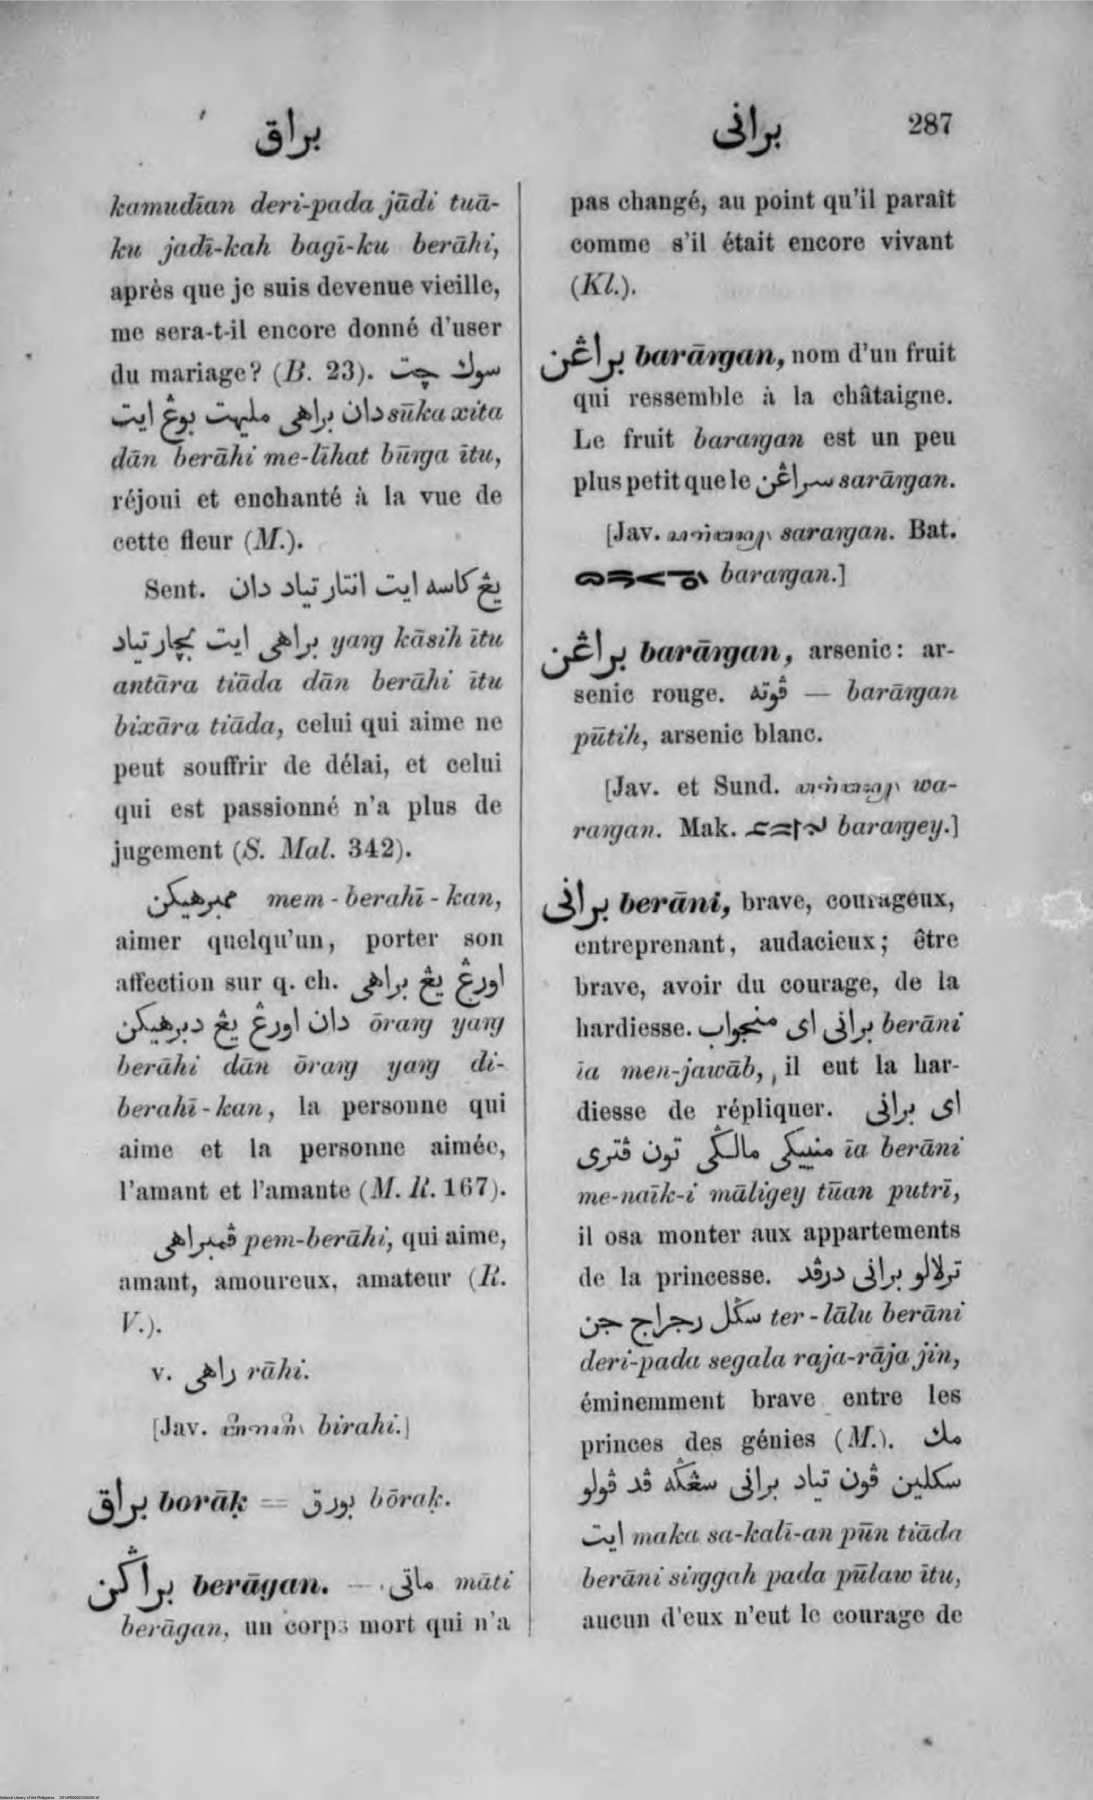 براق
برانى
287
kamudīan deri-pada jādi tuā-
ku jadī-kah bagī-ku berāhi,
après que je suis devenue vieille,
me sera-t-il encore donné d'user
du mariage? (B. 23). سوك چت
دان براهى مليهت بوڠ ايت sūka xita
dān berāhi me-līhat būnga ītu,
réjoui et enchanté à la vue de
cette fleur (M.).
Sent. يڠ كاسه ايت انتار تياد دان
براهى ايت بچار تياد yang kāsih ītu
antāra tiāda dān berāhi ītu
bixāra tiāda, celui qui aime ne
peut souffrir de délai, et celui
qui est passionné n'a plus de
jugement (S. Mal. 342).
ممبرهيكن mem-berahī-kan,
aimer quelqu'un, porter son
affection sur q. ch. اورڠ يڠ براهى
دان اورڠ يڠ دبرهيكن ōrang yang
berāhi dān ōrang yang di-
berahī-kan, la personne qui
aime et la personne aimée,
l'amant et l'amante (M. R. 167).
ڤمبراهى pem-berāhi, qui aime,
amant, amoureux, amateur (R.
V.).
v. راهى rāhi.
[Jav. birahi.]
براق borāḳ = بورق bōraḳ.
براݢن berāgan. — ماتى māti
berāgan, un corps mort qui n'a
pas changé, au point qu'il paraît
comme s'il était encore vivant
(Kl.).
براڠن barāngan, nom d'un fruit
qui ressemble à la châtaigne.
Le fruit barangan est un peu
plus petit que le سراڠن sarāngan.
[Jav. sarangan. Bat.
barangan.]
براڠن barāngan, arsenic: ar-
senic rouge. ڤوته — barāngan
pūtih, arsenic blanc.
[Jav. et Sund. wa-
rangan. Mak. barangey.]
برانى berāni, brave, courageux,
entreprenant, audacieux; être
brave, avoir du courage, de la
hardiesse. برانى اى منجواب berāni
īa men-jawāb, il eut la har-
diesse de répliquer. اى برانى
منييكى مالݢى تون ڤترى īa berāni
me-naīk-i māligey tūan putrī,
il osa monter aux appartements
de la princesse. ترلالو برانى درڤد
سݢل رجراج جن ter-lālu berāni
deri-pada segala raja-rāja jin,
éminemment brave entre les
princes des génies (M.). مك
سكلين ڤون تياد برانى سڠݢه ڤد ڤولو
ايت maka sa-kalī-an pūn tiāda
berāni singgah pada pūlaw ītu,
aucun d'eux n'eut le courage de